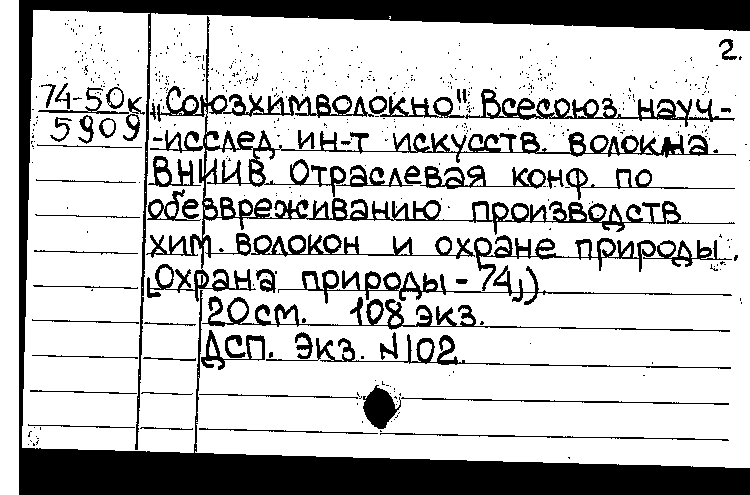 2.
74-50к „Союзхимволокно" Всесоюз. науч-
5909 -исслед. ин-т искусств. волокна.
ВНИИВ. Отраслевая конф. по
обезвреживанию производств
хим. волокон и охране природы.
[Охрана природы - 74]).
20 см. 108 экз.
ДСП. Экз. N102.